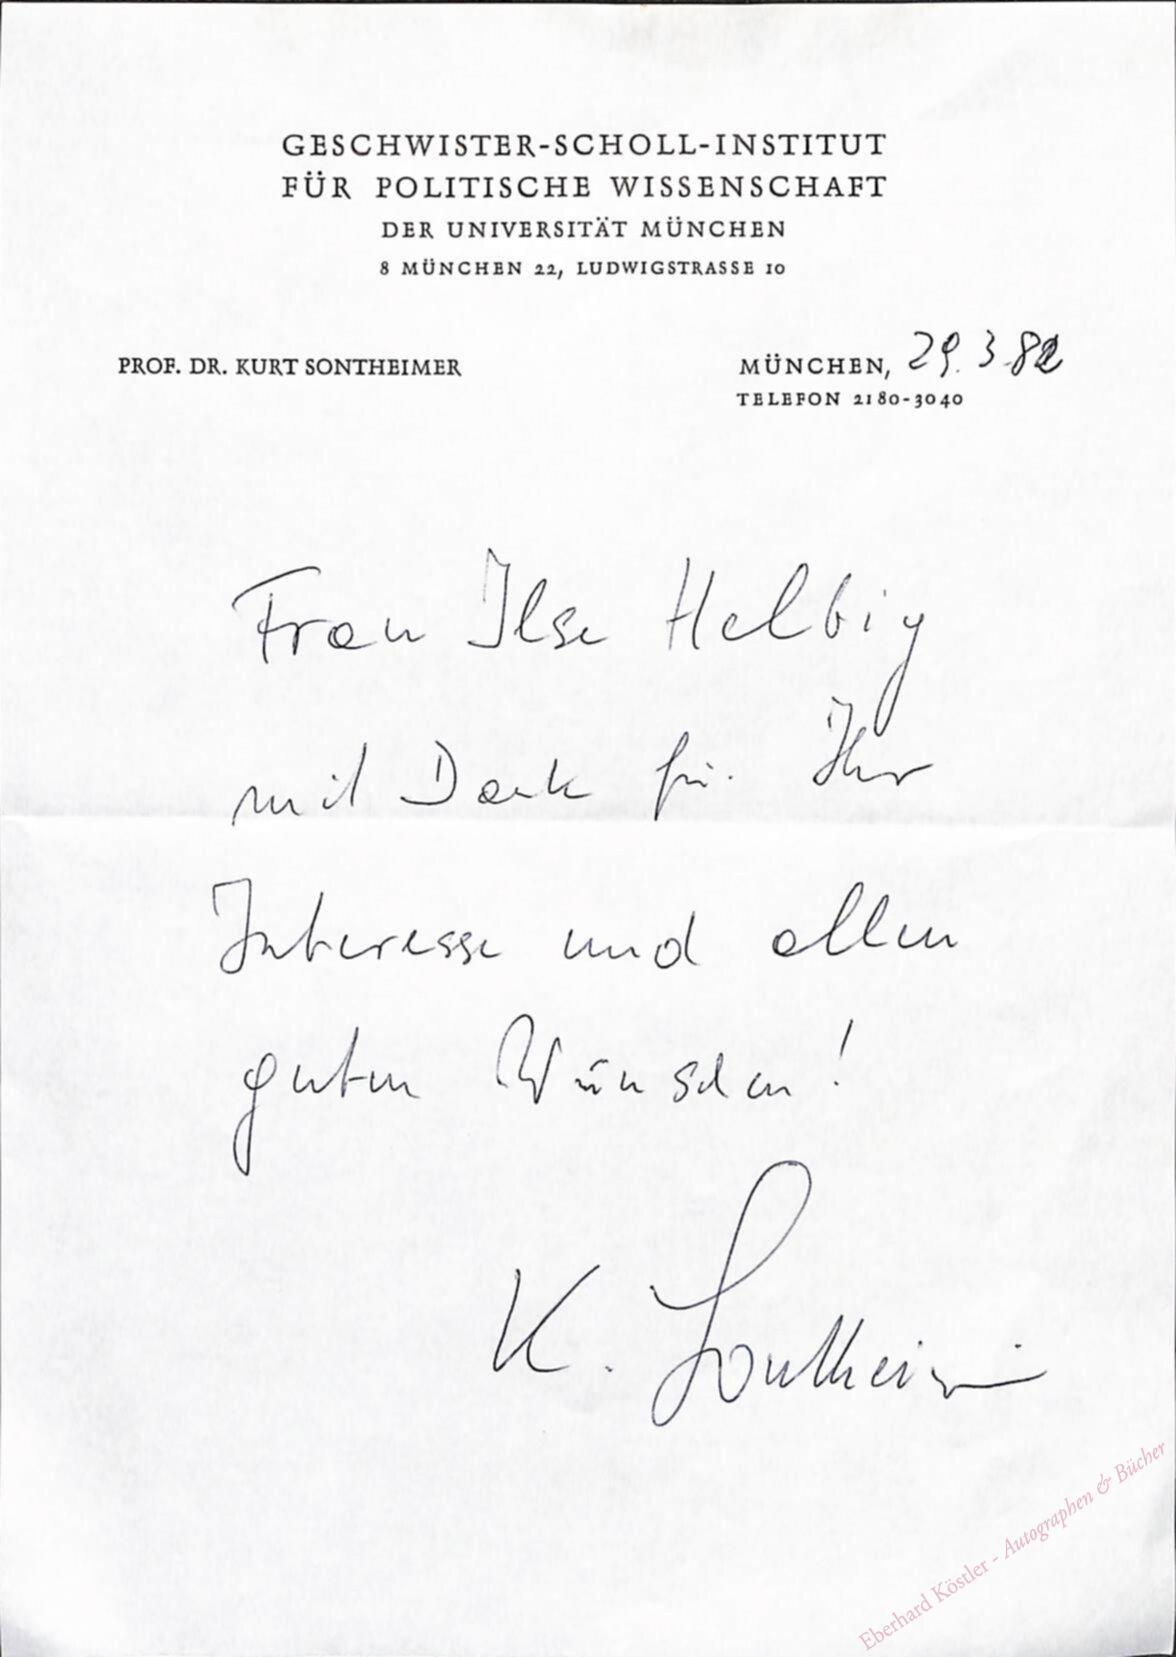 GESCHWISTER-SCHOLL-INSTITUT
FÜR POLITISCHE WISSENSCHAFT
DER UNIVERSITÄT MÜNCHEN
8 MÜNCHEN 22, LUDWIGSTRASSE 10
PROF. DR. KURT SONTHEIMER
MÜNCHEN, 29.3.82
TELEFON 2180-3040
Frau Ilse Helbig
mit Dank für Ihr
Interesse und allen
guten Wünschen!
K. Sontheimer
Eberhard Köstler - Autographen & Bücher